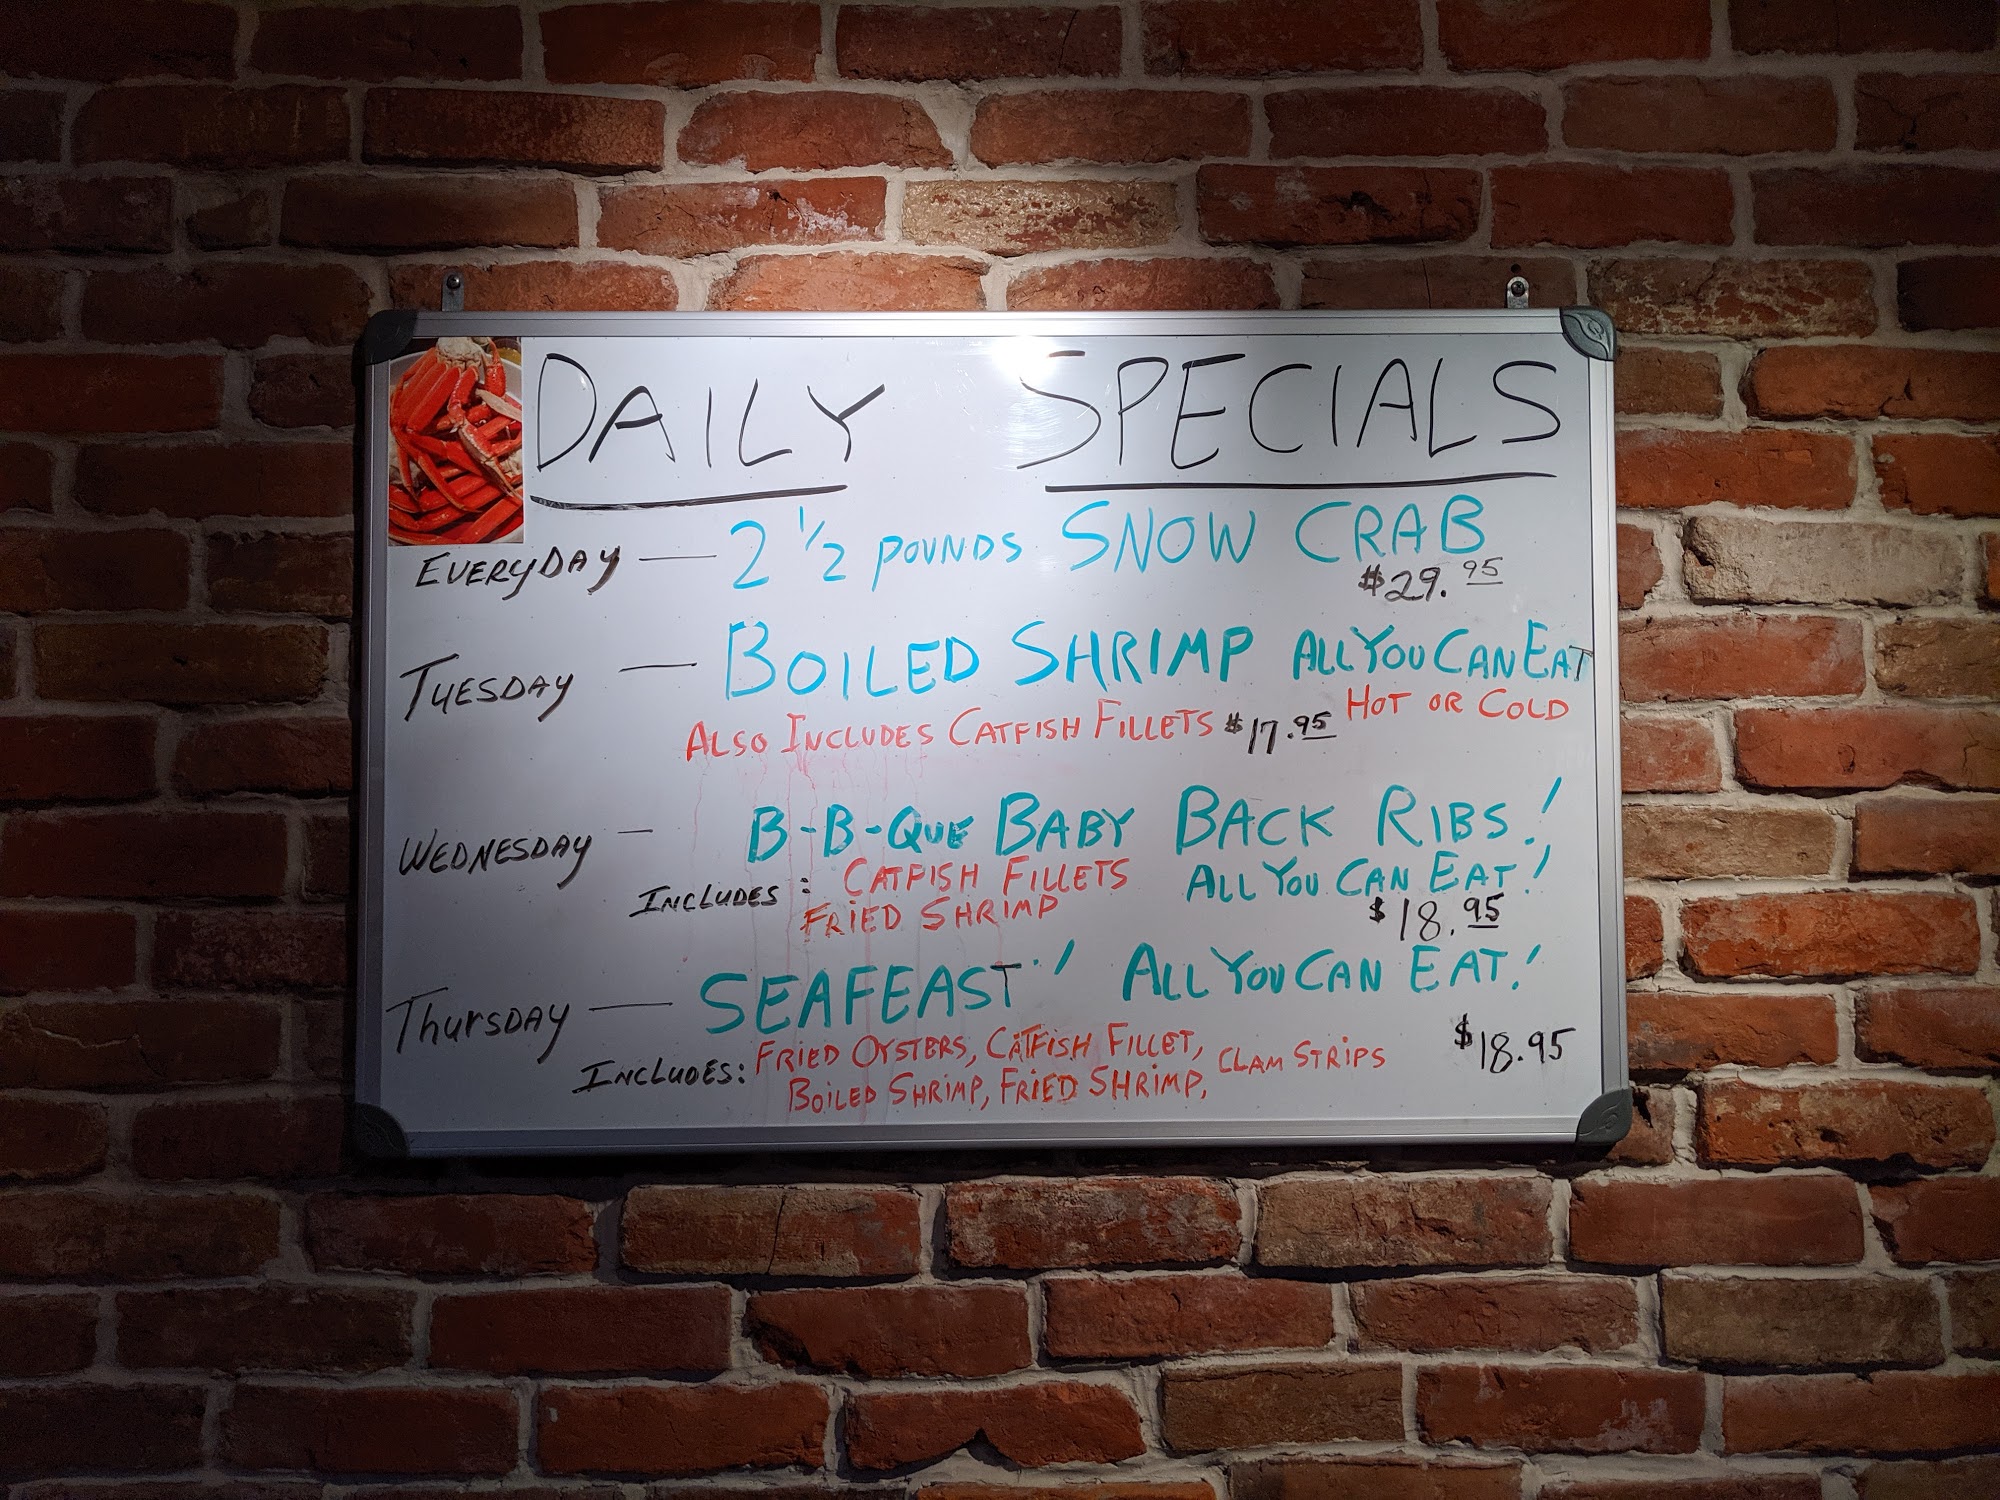 DAILY SPECIALS
EVERYDAY — 2 1/2 POUNDS SNOW CRAB
$29.95
TUESDAY — BOILED SHRIMP ALL YOU CAN EAT
ALSO INCLUDES CATFISH FILLETS $17.95 HOT OR COLD
WEDNESDAY — B-B-QUE BABY BACK RIBS!
INCLUDES: CATFISH FILLETS ALL YOU CAN EAT!
FRIED SHRIMP $18.95
THURSDAY — SEAFEAST! ALL YOU CAN EAT!
INCLUDES: FRIED OYSTERS, CATFISH FILLET, CLAM STRIPS $18.95
BOILED SHRIMP, FRIED SHRIMP,